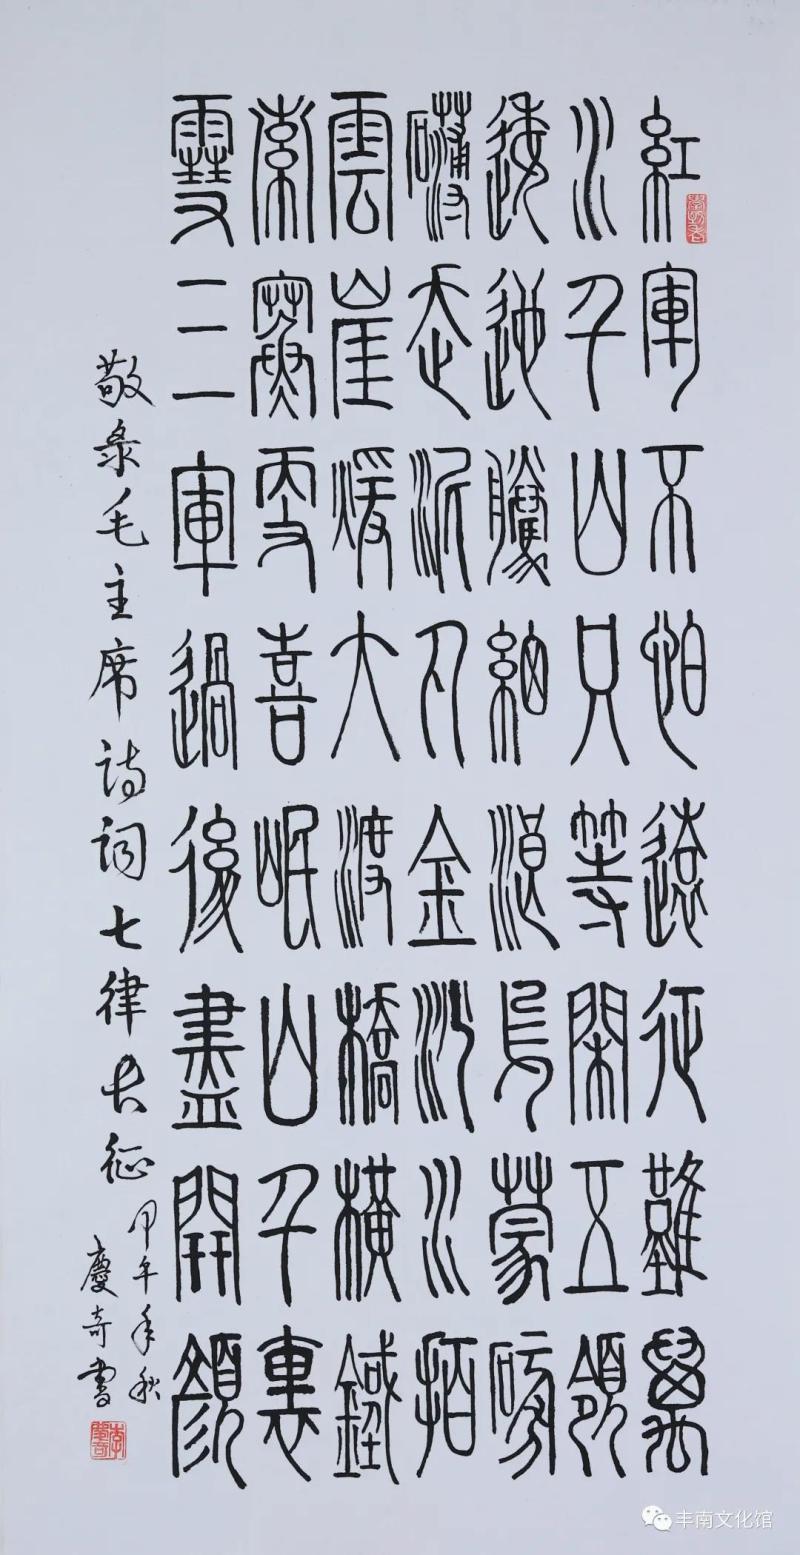 紅軍不怕遠征難萬
水千山只等閑五領
逶迤騰細浪烏蒙磅
礴走泥丸金沙水拍
雲崖暖大渡橋橫鐵
索寒更喜岷山千裏
雪三軍過後盡開顏
敬录毛主席诗词七律长征
甲午年秋
慶奇書
丰南文化馆